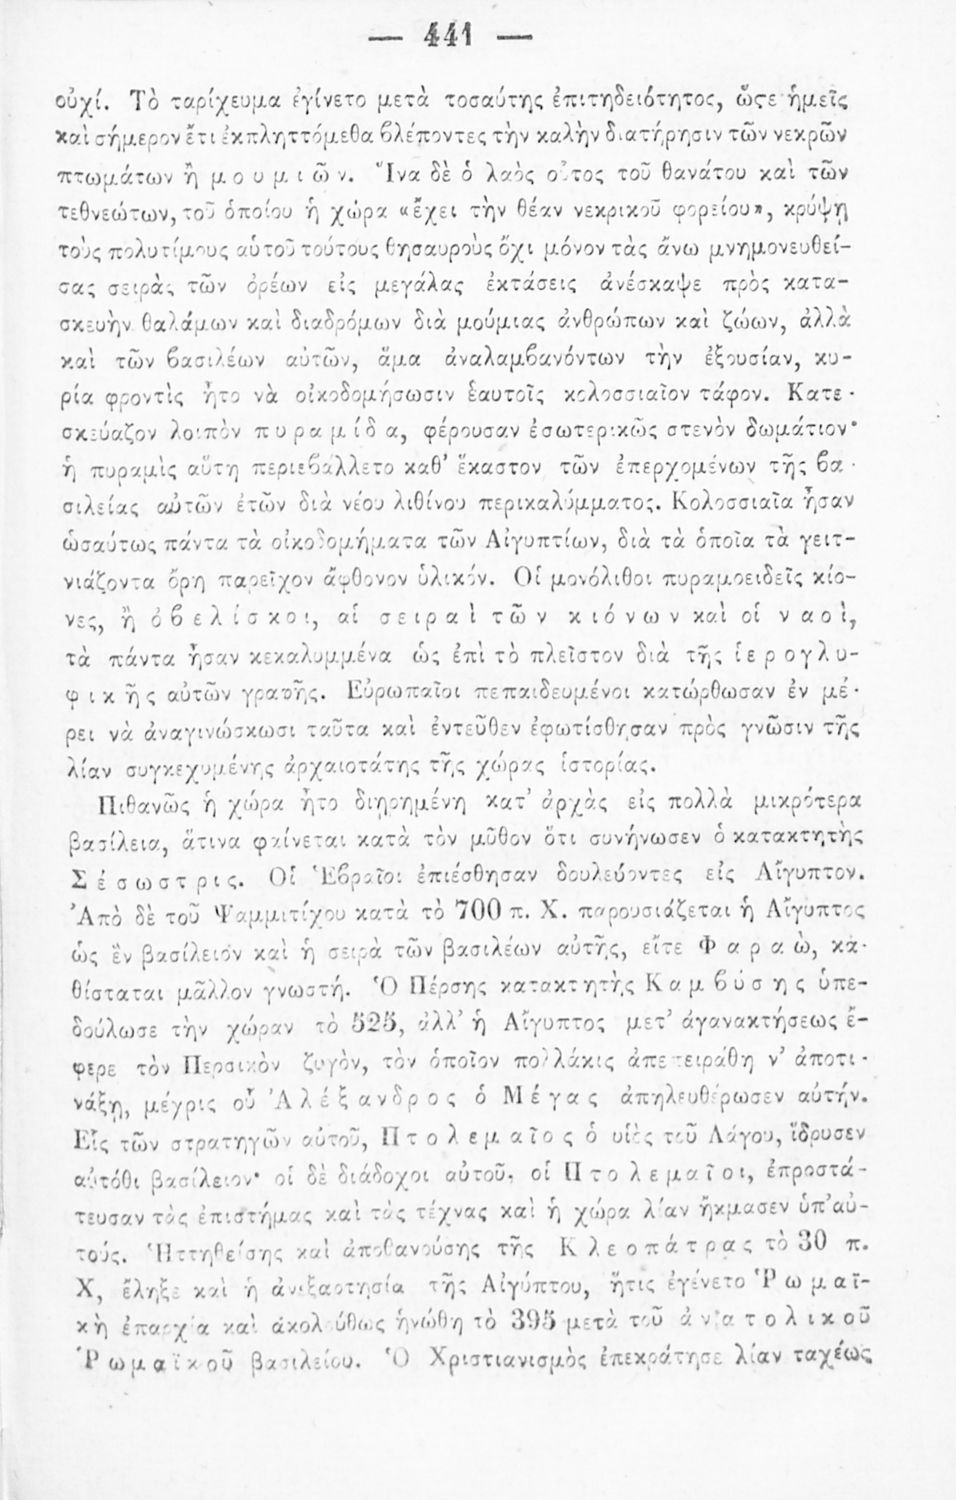 — 441 —
οὐχί. Τὸ ταρίχευμα ἐγίνετο μετὰ τοσαύτης ἐπιτηδειότητος, ὥςε ἡμεῖς
καὶ σήμερον ἔτι ἐκπληττόμεθα βλέποντες τὴν καλὴν διατήρησιν τῶν νεκρῶν
πτωμάτων ἢ μουμιῶν. Ἵνα δὲ ὁ λαὸς οὗτος τοῦ θανάτου καὶ τῶν
τεθνεώτων, τοῦ ὁποίου ἡ χώρα «ἔχει τὴν θέαν νεκρικοῦ φορείου», κρύψῃ
τοὺς πολυτίμους αὑτοῦ τούτους θησαυροὺς ὄχι μόνον τὰς ἄνω μνημονευθεί-
σας σειρὰς τῶν ὀρέων εἰς μεγάλας ἐκτάσεις ἀνέσκαψε πρὸς κατα-
σκευὴν θαλάμων καὶ διαδρόμων διὰ μούμιας ἀνθρώπων καὶ ζώων, ἀλλὰ
καὶ τῶν βασιλέων αὐτῶν, ἅμα ἀναλαμβανόντων τὴν ἐξουσίαν, κυ-
ρία φροντὶς ἦτο νὰ οἰκοδομήσωσιν ἑαυτοῖς κολοσσιαῖον τάφον. Κατε-
σκεύαζον λοιπὸν πυραμίδα, φέρουσαν ἐσωτερικῶς στενὸν δωμάτιον·
ἡ πυραμὶς αὕτη περιεβάλλετο καθ’ ἕκαστον τῶν ἐπερχομένων τῆς βα-
σιλείας αὐτῶν ἐτῶν διὰ νέου λιθίνου περικαλύμματος. Κολοσσιαῖα ἦσαν
ὡσαύτως πάντα τὰ οἰκοδομήματα τῶν Αἰγυπτίων, διὰ τὰ ὁποῖα τὰ γειτ-
νιάζοντα ὄρη παρεῖχον ἄφθονον ὑλικόν. Οἱ μονόλιθοι πυραμοειδεῖς κίο-
νες, ἢ ὀβελίσκοι, αἱ σειραὶ τῶν κιόνων καὶ οἱ ναοὶ,
τὰ πάντα ἦσαν κεκαλυμμένα ὡς ἐπὶ τὸ πλεῖστον διὰ τῆς ἱερογλυ-
φικῆς αὐτῶν γραφῆς. Εὐρωπαῖοι πεπαιδευμένοι κατώρθωσαν ἐν μέ-
ρει νὰ ἀναγινώσκωσι ταῦτα καὶ ἐντεῦθεν ἐφωτίσθησαν πρὸς γνῶσιν τῆς
λίαν συγκεχυμένης ἀρχαιοτάτης τῆς χώρας ἱστορίας.
Πιθανῶς ἡ χώρα ἦτο διῃρημένη κατ’ ἀρχὰς εἰς πολλὰ μικρότερα
βασίλεια, ἅτινα φαίνεται κατὰ τὸν μῦθον ὅτι συνήνωσεν ὁ κατακτητὴς
Σέσωστρις. Οἱ Ἑβραῖοι ἐπιέσθησαν δουλεύοντες εἰς Αἴγυπτον.
Ἀπὸ δὲ τοῦ Ψαμμιτίχου κατὰ τὸ 700 π. Χ. παρουσιάζεται ἡ Αἴγυπτος
ὡς ἓν βασίλειον καὶ ἡ σειρὰ τῶν βασιλέων αὐτῆς, εἴτε Φαραὼ, κα-
θίσταται μᾶλλον γνωστή. Ὁ Πέρσης κατακτητὴς Καμβύσης ὑπε-
δούλωσε τὴν χώραν τὸ 525, ἀλλ’ ἡ Αἴγυπτος μετ’ ἀγανακτήσεως ἔ-
φερε τὸν Περσικὸν ζυγὸν, τὸν ὁποῖον πολλάκις ἀπεπειράθη ν’ ἀποτι-
νάξῃ, μέχρις οὗ Ἀλέξανδρος ὁ Μέγας ἀπηλευθέρωσεν αὐτήν.
Εἷς τῶν στρατηγῶν αὐτοῦ, Πτολεμαῖος ὁ υἱὸς τοῦ Λάγου, ἵδρυσεν
αὐτόθι βασίλειον· οἱ δὲ διάδοχοι αὐτοῦ, οἱ Πτολεμαῖοι, ἐπροστά-
τευσαν τὰς ἐπιστήμας καὶ τὰς τέχνας καὶ ἡ χώρα λίαν ἤκμασεν ὑπ’ αὐ-
τούς. Ἡττηθείσης καὶ ἀποθανούσης τῆς Κλεοπάτρας τὸ 30 π.
Χ, ἔληξε καὶ ἡ ἀνεξαρτησία τῆς Αἰγύπτου, ἥτις ἐγένετο Ῥωμαϊ-
κὴ ἐπαρχία καὶ ἀκολούθως ἡνώθη τὸ 395 μετὰ τοῦ ἀνατολικοῦ
Ῥωμαϊκοῦ βασιλείου. Ὁ Χριστιανισμὸς ἐπεκράτησε λίαν ταχέως